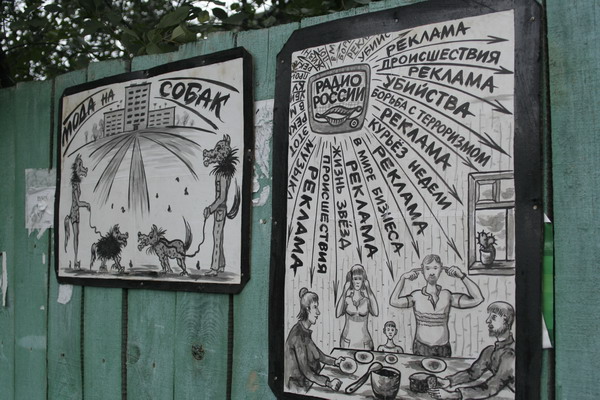 МОДА НА СОБАК
РАДИО
РОССИИ
РЕКЛАМА
ПРОИСШЕСТВИЯ
РЕКЛАМА
УБИЙСТВА
БОРЬБА С ТЕРРОРИЗМОМ
РЕКЛАМА
КУРЬЁЗ НЕДЕЛИ
РЕКЛАМА
В МИРЕ БИЗНЕСА
РЕКЛАМА
ЖИЗНЬ ЗВЁЗД
ПРОИСШЕСТВИЯ
РЕКЛАМА
МУЗЫКА